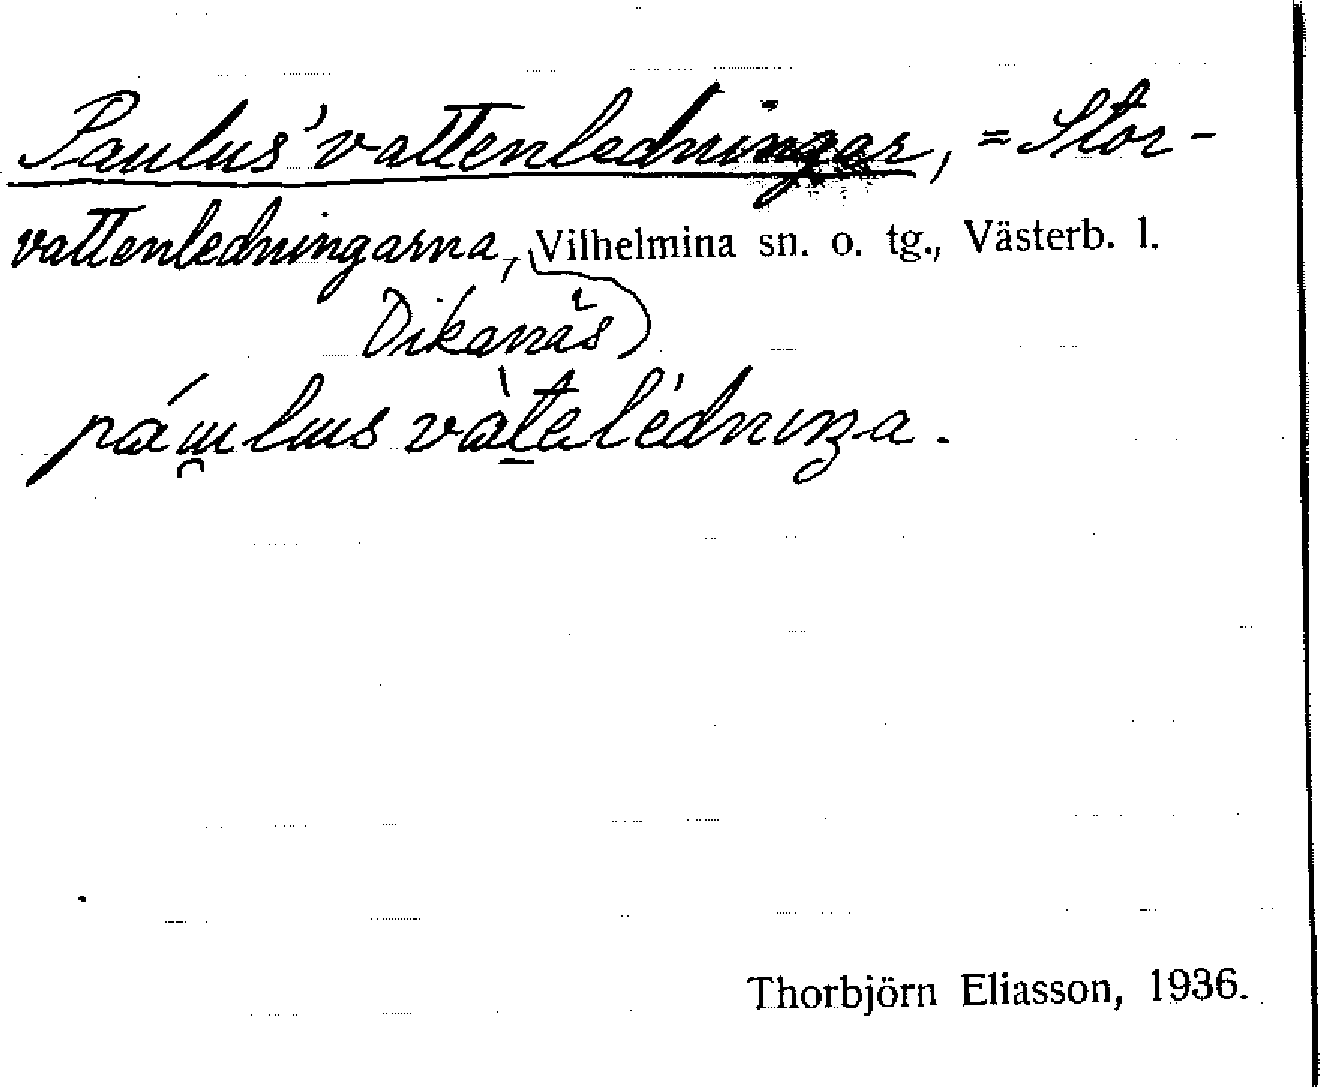 Paulus' vattenledningar, = Stor-
vattenledningarna, Vilhelmina sn. o. tg., Västerb. l.
Dikanäs
páu̯lus vàt̠elédniŋa.
Thorbjörn Eliasson, 1936.